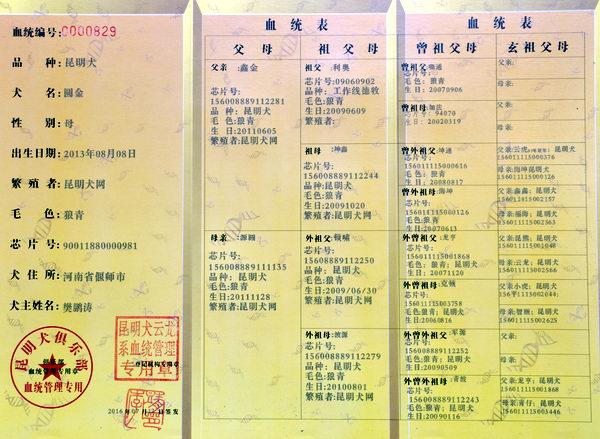 血统编号:0000829
品 种:昆明犬
犬 名:圆金
性 别:母
出生日期:2013年08月08日
繁殖者:昆明犬网
毛 色:狼青
芯片号:90011880000981
犬住所:河南省偃师市
犬主姓名:樊鹏涛
昆明犬俱乐部
血统管理专用
昆明犬云犬
系血统管理
专用章
血统表
父母
祖父母
父亲:鑫金
芯片号:
156008889112281
品种:昆明犬
毛色:狼青
生日:20110605
繁殖者:昆明犬网
母亲:源圆
芯片号:
156008889111135
品种:昆明犬
毛色:狼青
生日:20111128
繁殖者:昆明犬网
祖父:利奥
芯片号:09060902
品种:工作线德牧
毛色:狼青
生日:20090609
繁殖者:
祖母:坤鑫
芯片号:
156008889112244
品种:昆明犬
毛色:狼青
生日:20091020
繁殖者:昆明犬网
外祖父:顿啸
芯片号:
156008889112250
品种:昆明犬
毛色:狼青
生日:2009/06/30
繁殖者:昆明犬网
外祖母:波源
芯片号:
156008889112279
品种:昆明犬
毛色:狼青
生日:20100801
繁殖者:昆明犬网
血统表
曾祖父母
玄祖父母
曾祖父:
芯片号:
毛色:狼青
生日:20070906
曾祖母:
芯片号:94070
生日:20020319
曾外祖父:坤通
芯片号:
156011115000616
毛色:狼青
生日:20080817
曾外祖母:海坤
芯片号:
156011115000126
毛色:狼青
生日:20070613
外曾祖父:龙亨
芯片号:
156011115001868
毛色:狼青;昆明犬
生日:20071120
外曾祖母:克顿
芯片号:
156011115003758
毛色:狼青;昆明犬
生日:20060816
外曾外祖父:军源
芯片号:
156008889112252
毛色:狼青;昆明犬
生日:20090509
外曾外祖母:青波
芯片号:
156008889112243
毛色:狼青;昆明犬
生日:20090116
父亲:
母亲:
父亲:
母亲:
父亲:云虎 昆明犬
156011115000376
母亲:海坤昆明犬
156011115000126
父亲:鑫鑫;昆明犬
156011115002157
母亲:福海;昆明犬
156011115002563
父亲:昆龙;昆明犬
156011115001048
母亲:云龙;昆明犬
156011115002566
父亲:小虎;昆明犬
母亲:昆明犬
156011115002625
父亲:
母亲:
父亲:龙亨;昆明犬
156011115001868
母亲:青仔;昆明犬
156011115003446